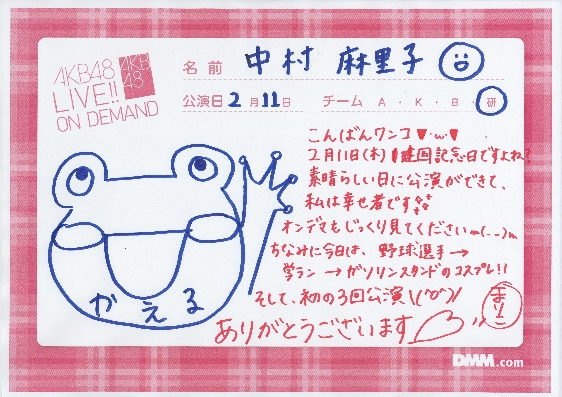 AKB48
LIVE!!
ON DEMAND
AKB
48
名前 中村 麻里子
公演日 2月11日 チーム A・K・B・研
こんばんワンコ♥・ω・♥
2月11日(木)建国記念日ですよね?
素晴らしい日に公演ができて、
私は幸せ者です
オンデマもじっくり見てくださいm(._.)m
ちなみに今日は、野球選手→
学ラン→ガソリンスタンドのコスプレ!!
そして、初の3回公演\(^o^)/
ありがとうございます
まりこ
かえる
DMM.com